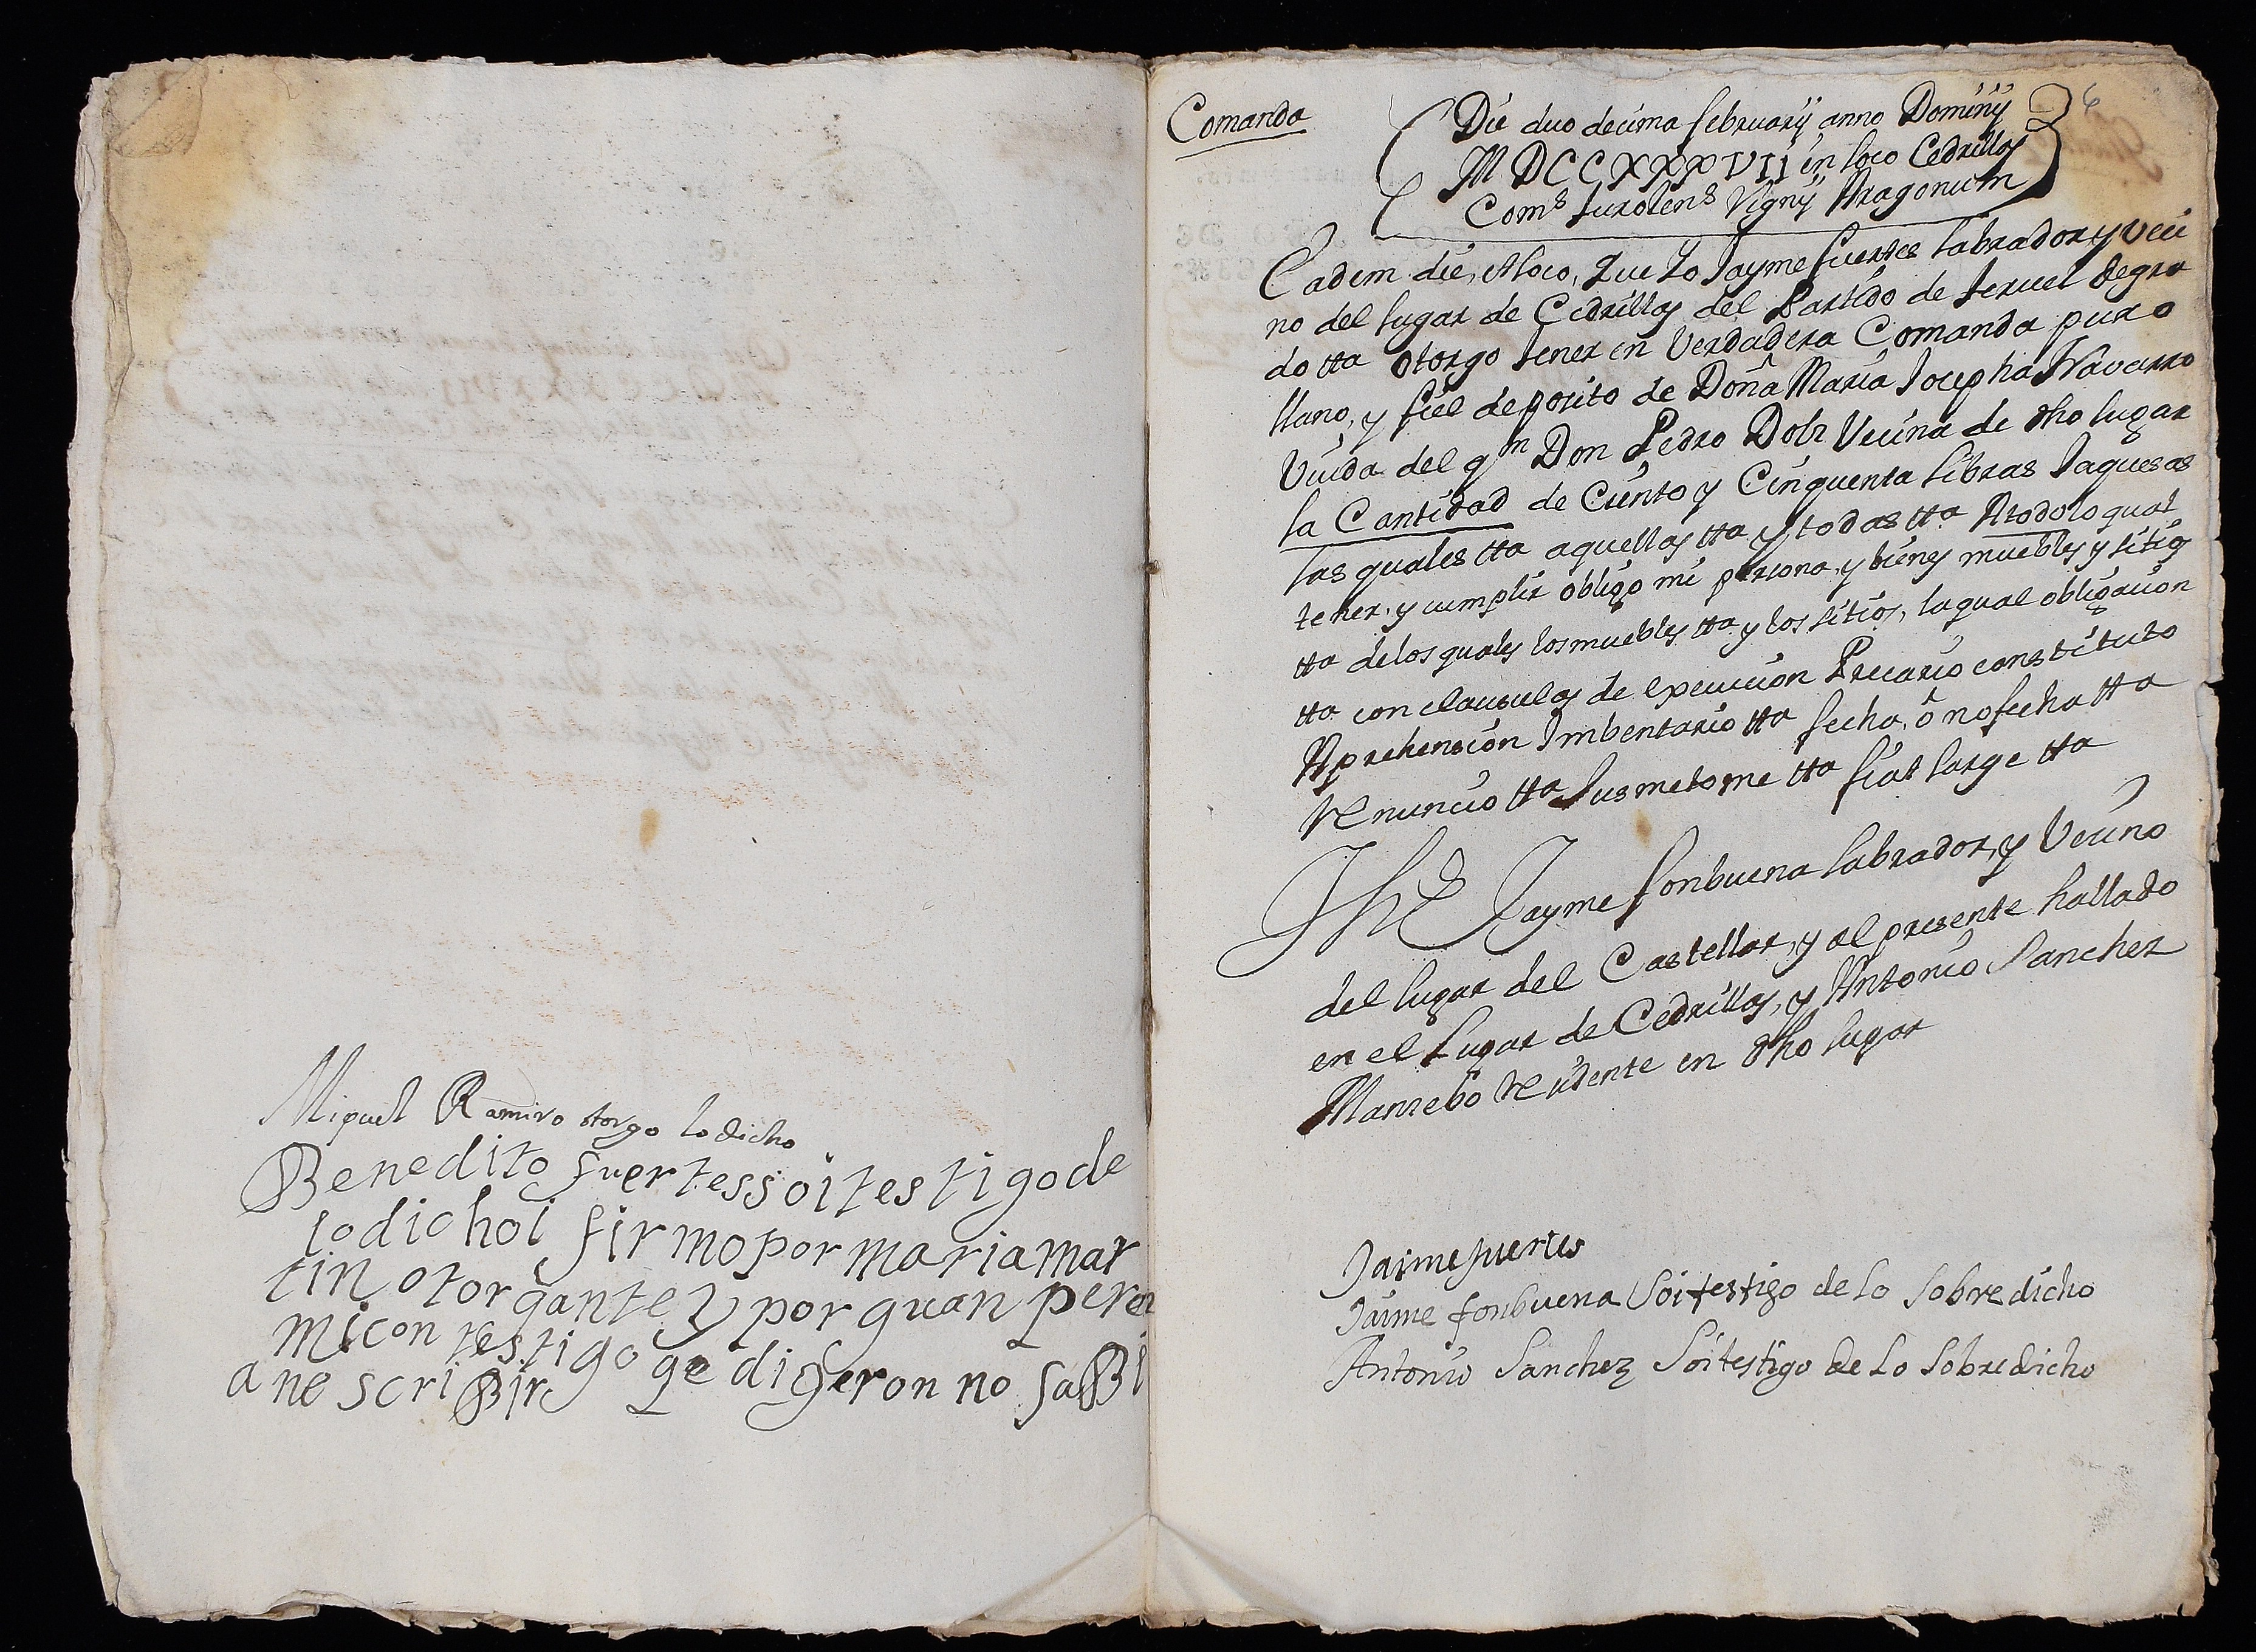 Miguel Ramiro otorgo lo dicho
Benedito fuertes soi testigo de
lo dicho i firmo por maria mar
tin otorgante y por guan pere
mi con testigo qe digeron no saBi
an escriBir
Comanda
6
Die duo decima februarij anno Dominij
MDCCXXXVII in loco Cedrillas
Com.s turolen.s Regnij Aragonum
Eadem die, et loco, Que Yo Jayme fuertes labrador y veci
no del lugar de Cedrillas del Partido de teruel de gra
do tta otorgo tener en Verdadera Comanda puro
llano, y fiel deposito de Doña Maria Josepha Navarro
Viuda del qm Don Pedro Dolz Vecina de dho lugar
la Cantidad de Ciento y Cinquenta libras Jaquesas
las quales tta aquellas tta y todas tta A todo lo qual
tener, y cumplir obligo mi persona, y bienes muebles y sitios
tta de los quales los muebles tta y los sitios, la qual obligacion
tta con clausulas de execucion Precario constituto
Aprehension Imbentario tta fecha, ô no fecha tta
Renuncio tta Susmetome tta fiat large tta
Ths Jayme fonbuena labrador, y Vecino
del lugar del Castellar, y al presente hallado
en el lugar de Cedrillas, y Antonio Sanchez
Manzebo Residente en dho lugar
Jaime fuertes
Jaime fonbuena Soi testigo de lo sobre dicho
Antonio Sanchez Soi testigo de Lo Sobredicho